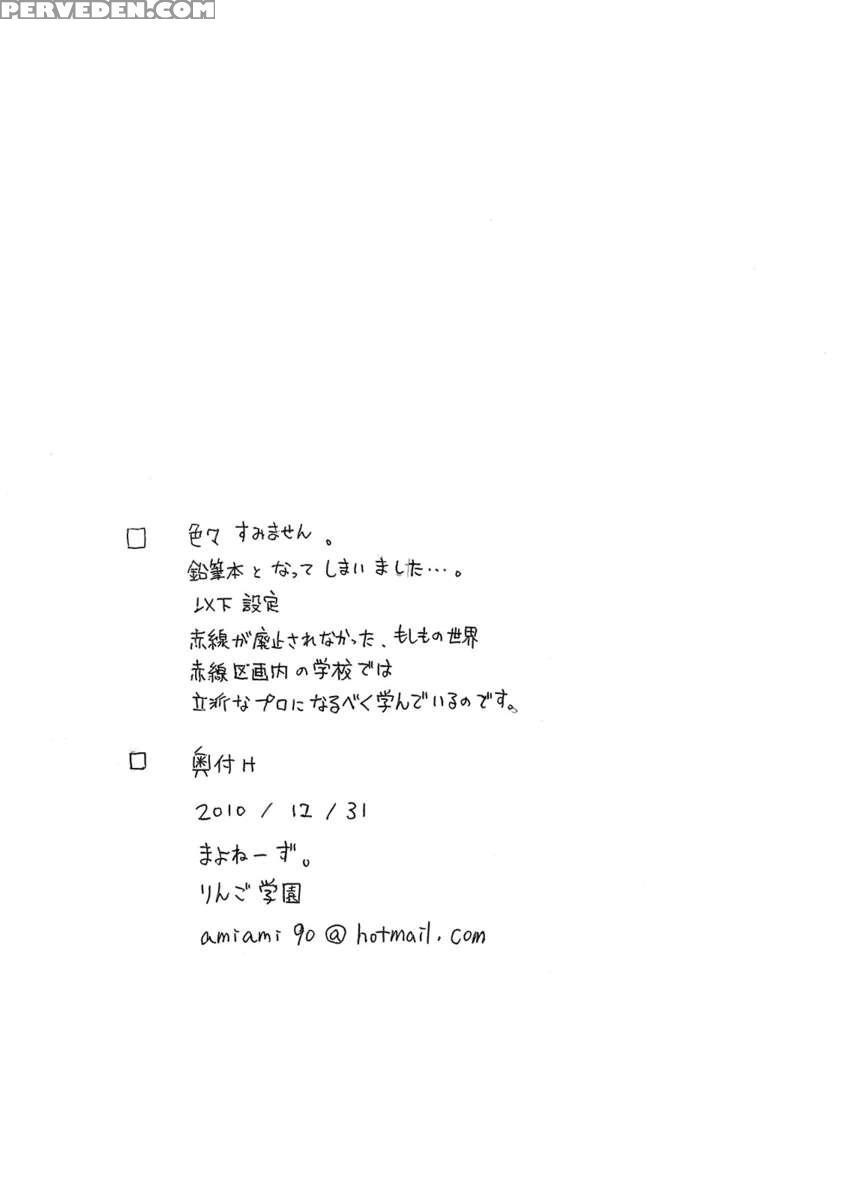 PERVEDEN.COM
□ 色々すみません。
鉛筆本となってしまいました…。
以下設定
赤線が廃止されなかった、もしもの世界
赤線区画内の学校では
立派なプロになるべく学んでいるのです。
□ 奥付H
2010/12/31
まよねーず。
りんご学園
amiami90@hotmail.com